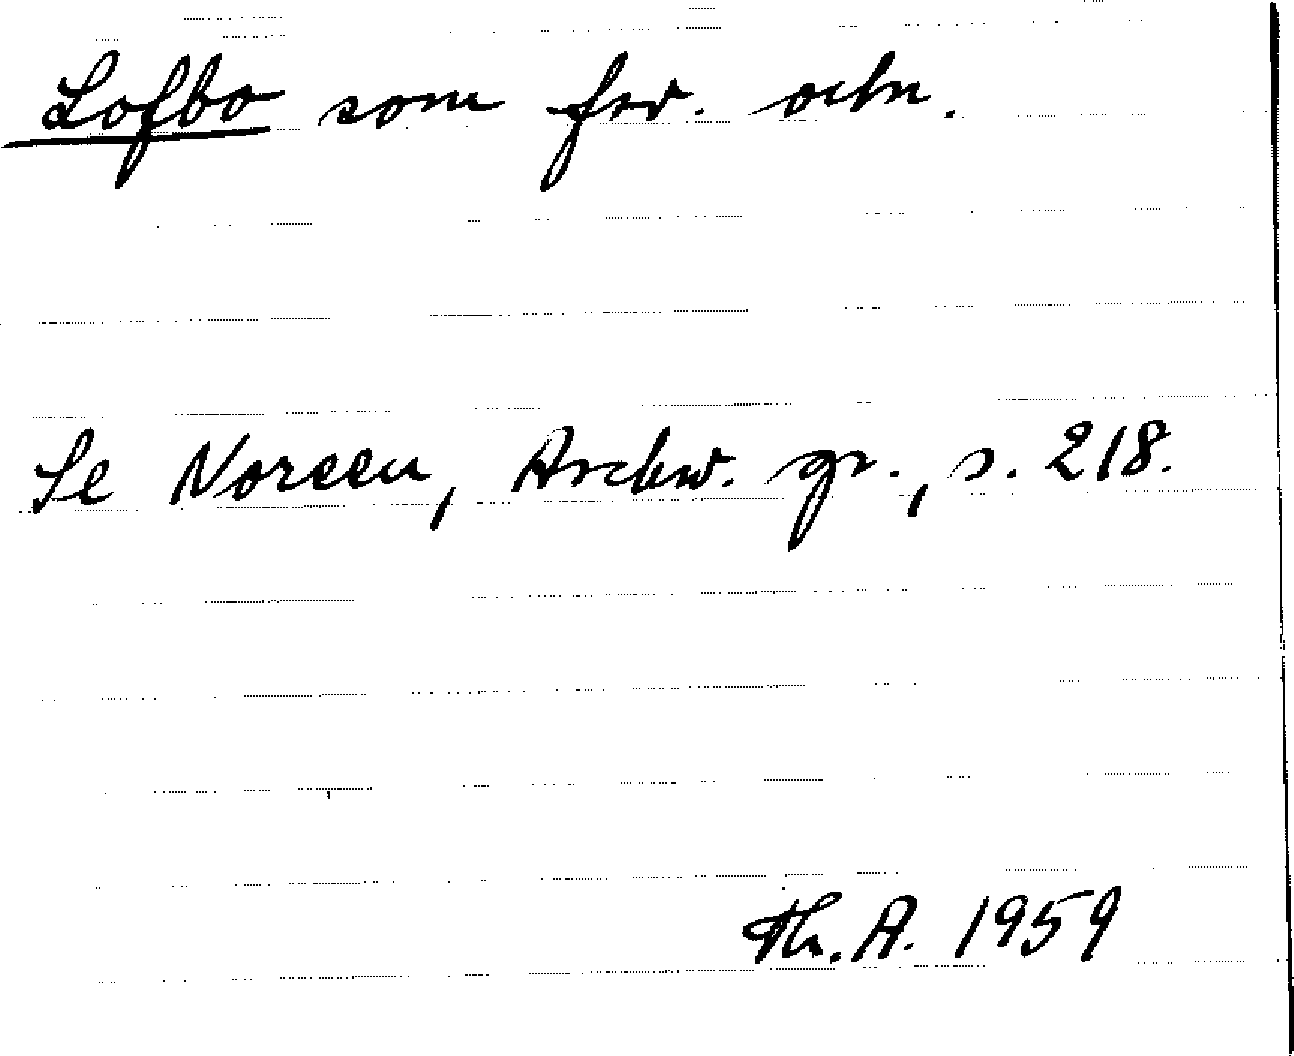 Lofbo som frv. ortn.
Se Noreen, Arckiv. gr., s. 218.
Th. A. 1959